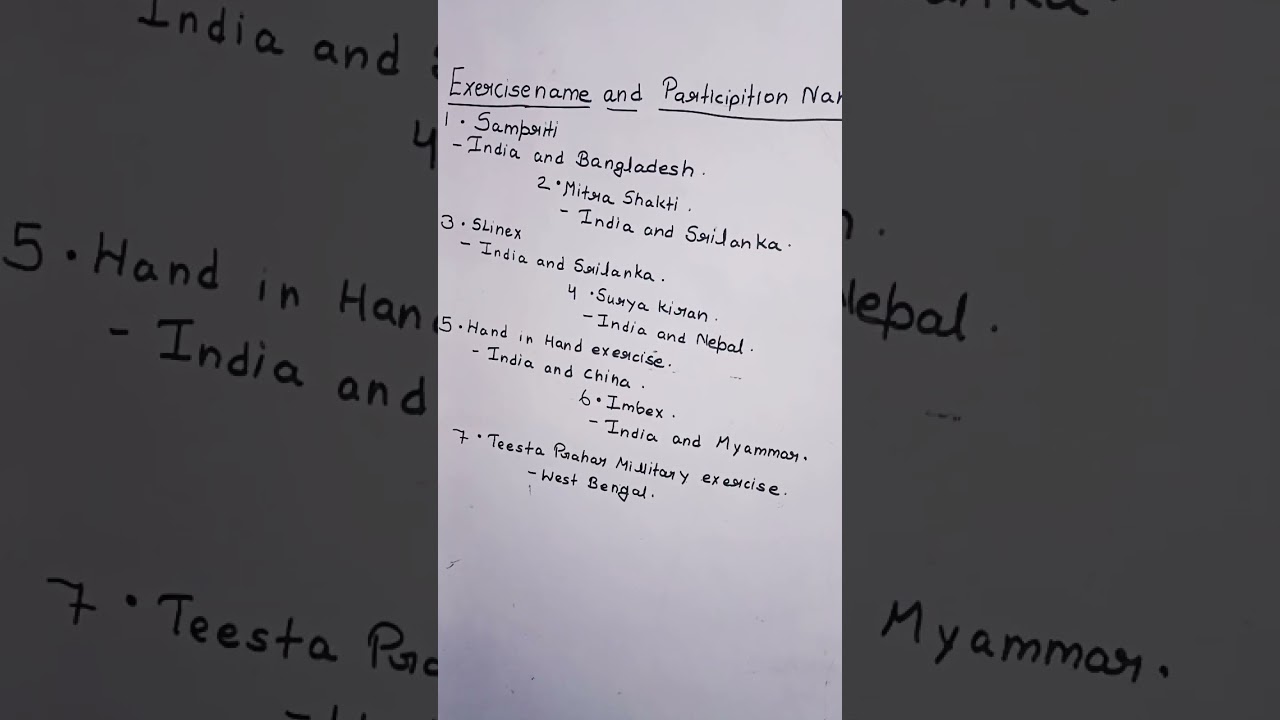 Exercise name and Participition Nar
1. Sampriti
- India and Bangladesh.
2. Mitra Shakti.
- India and Srilanka.
3. SLinex
- India and Srilanka.
4. Surya kiran.
- India and Nepal.
5. Hand in Hand exercise.
- India and China.
6. Imbex.
- India and Myammar.
7. Teesta Prahar Millitary exercise.
- West Bengal.